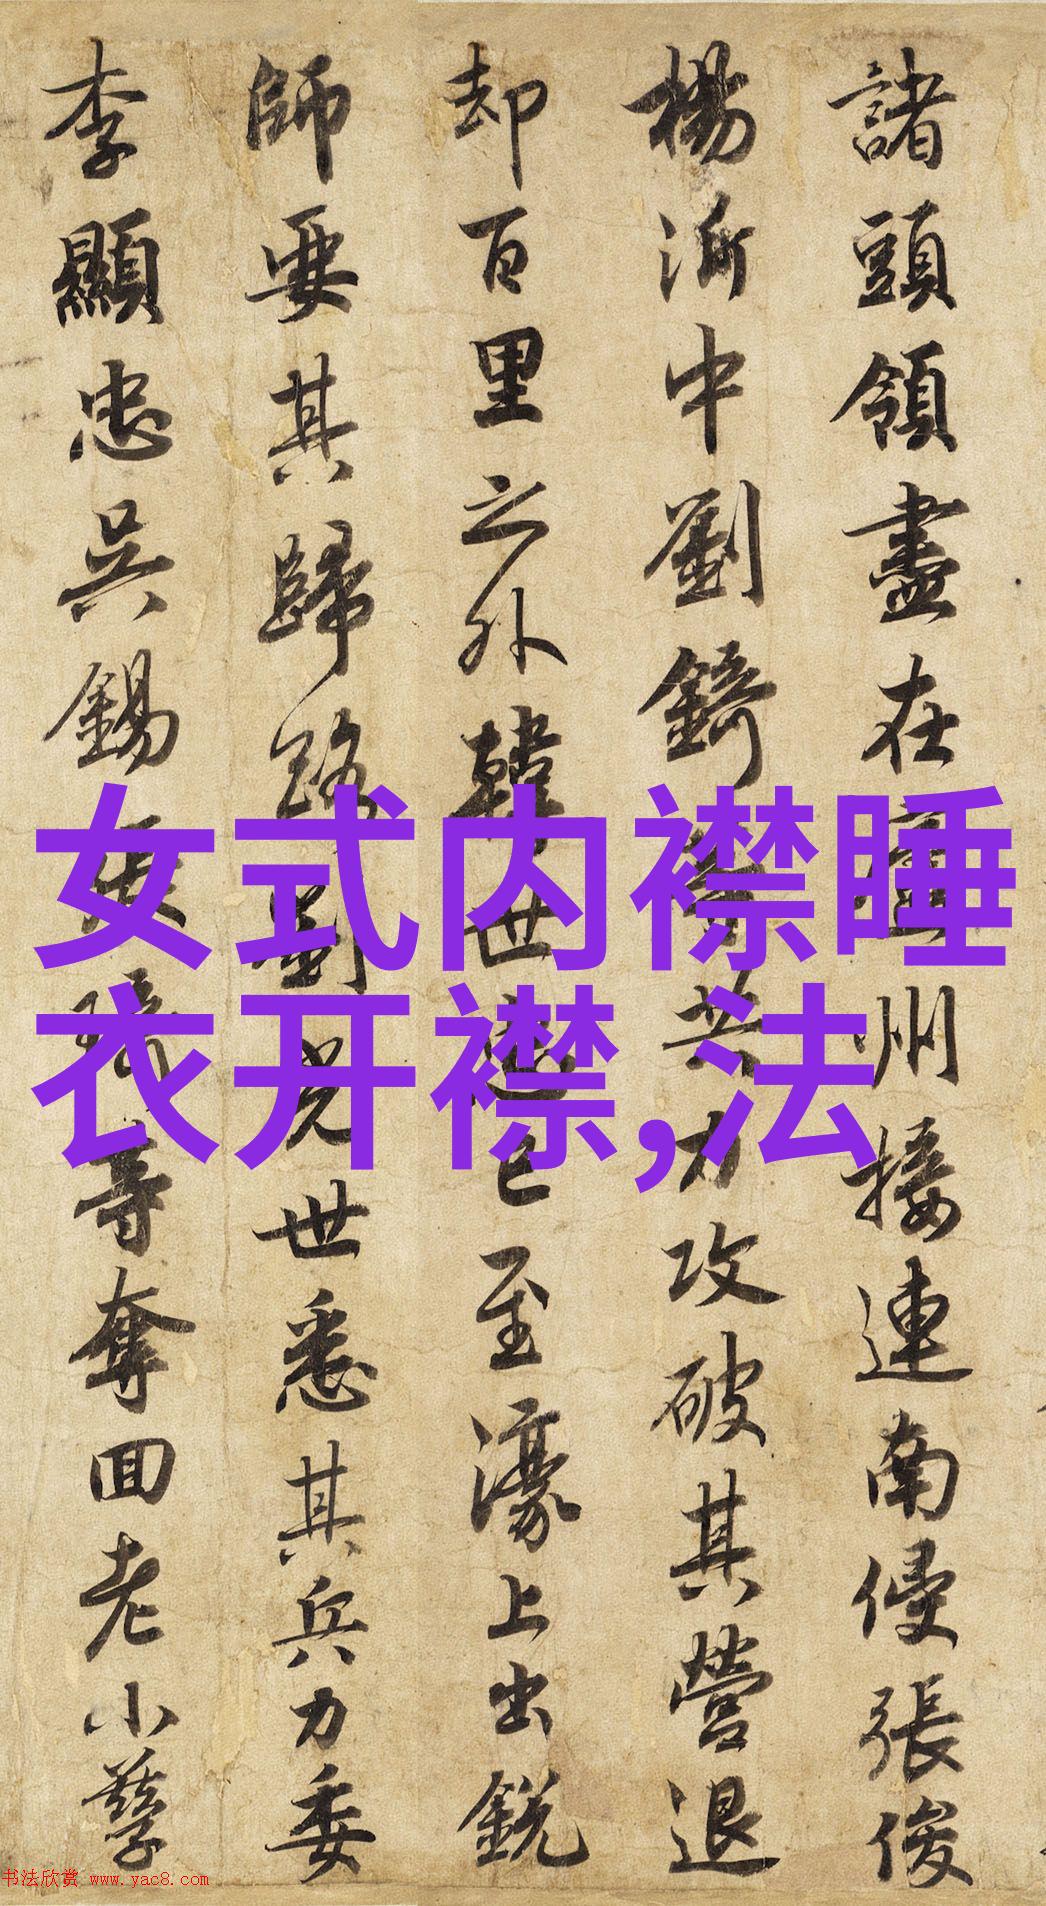 諸頭領盡在廬州接連南侵張俊
楊沂中劉錡等共力攻破其營退
却百里之外韓世忠已至濠上出銳
師要其歸路劉光世悉其兵力委
李顯忠吳錫張琦等奪囬老小孳
女式内襟睡
衣开襟,法
书法欣赏 www.yac8.com